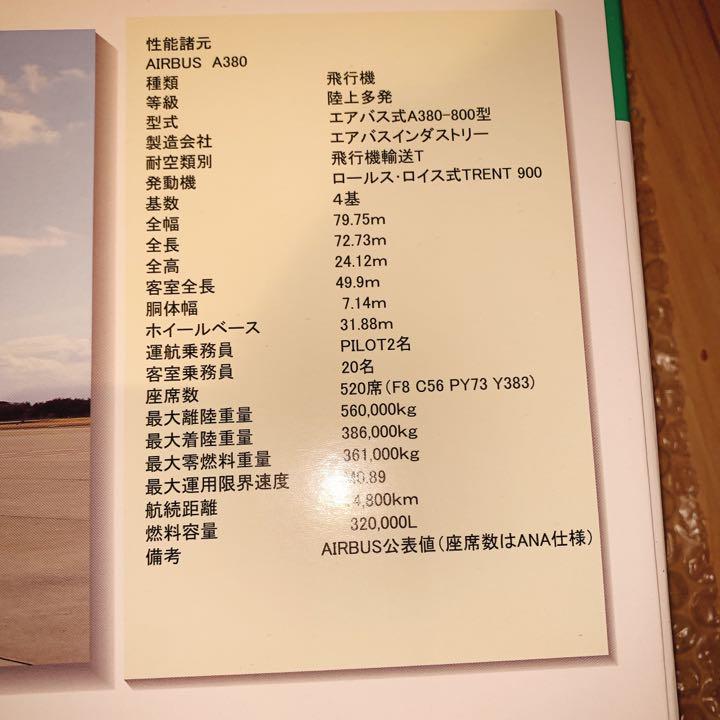 性能諸元
AIRBUS A380
種類 飛行機
等級 陸上多発
型式 エアバス式A380-800型
製造会社 エアバスインダストリー
耐空類別 飛行機輸送T
発動機 ロールス・ロイス式TRENT 900
基数 4基
全幅 79.75m
全長 72.73m
全高 24.12m
客室全長 49.9m
胴体幅 7.14m
ホイールベース 31.88m
運航乗務員 PILOT2名
客室乗務員 20名
座席数 520席(F8 C56 PY73 Y383)
最大離陸重量 560,000kg
最大着陸重量 386,000kg
最大零燃料重量 361,000kg
最大運用限界速度
航続距離
燃料容量 320,000L
備考 AIRBUS公表値(座席数はANA仕様)